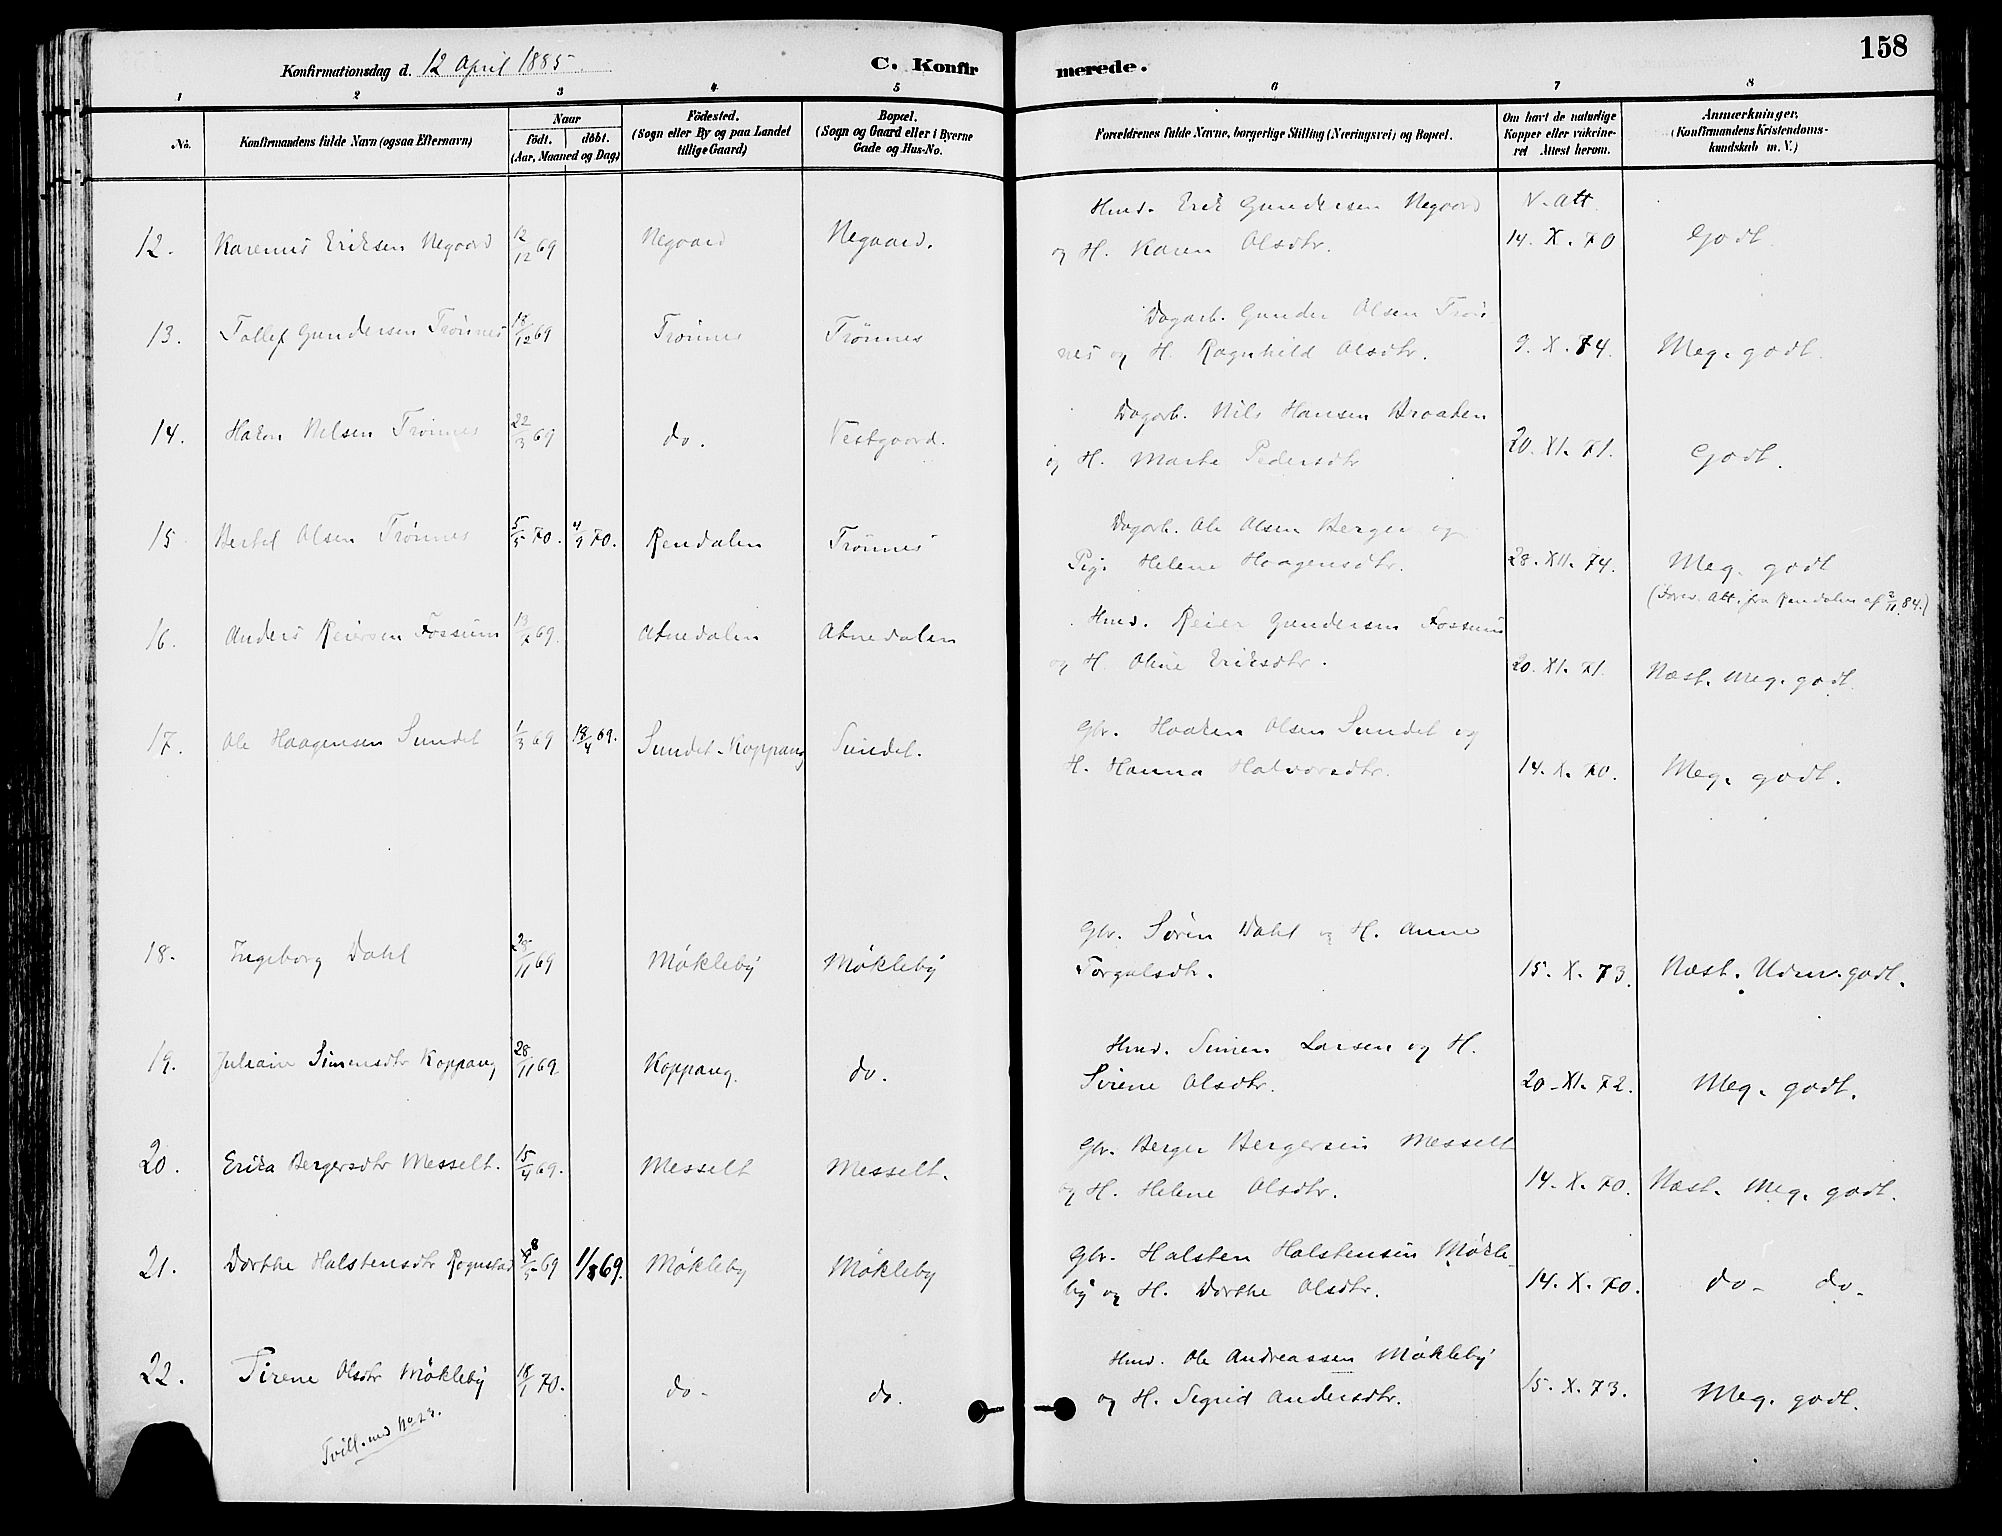 158
Konfirmationsdag d. 12 April 1885. C. Konfirmerede.
1 2 3 4 5 6 7 8
No. Konfirmandens fulde Navn (ogsaa Efternavn) Naar født. døbt. (Aar, Maaned og Dag) Fødested. (Sogn eller By og paa Landet tillige Gaard) Bopæl. (Sogn og Gaard eller i Byerne Gade og Hus-No. Forældrenes fulde Navne, borgerlige Stilling (Næringsvei) og Bopæl. Om havt de naturlige Kopper eller vakcineret Attest herom. Anmærkninger, (Konfirmandens Kristendomskundskab m. V.)
Hmd. Erik Gundersen Negaard V. Att
12. Karenus Eriksen Negaard 12/12 69 Negaard Negaard. og H. Karen Olsdtr. 14. X. 70 Godt.
Dagarb. Gunder Olsen Trøn-
13. Tollef Gundersen Trønnes 18/12 69 Trønnes Trønnes nes og H. Ragnhild Olsdtr. 9. X. 84. Meg. godt.
Dagarb. Nils Hansen Braaden
14. Hakon Nilsen Trønnes 22/3 69 do. Vestgaard. og H. Marte Pedersdtr 20. XI. 71. Godt.
Dagarb. Ole Olsen Berger og
15. Bertel Olsen Trønnes 5/5 70. 4/9 70. Rendalen Trønnes Pige Helene Haagensdtr. 28. XII. 74. Meg. godt
(Forev. Att. fra Rendalen af 2/11 84.)
Hmd. Reier Gundersen Fossum
16. Anders Reiersen Fossum 13/7 69. Atnedalen Atnedalen og H. Oline Eriksdtr. 20. XI. 71. Næst. Meg. godt.
Gbr. Haaken Olsen Sundet og
17. Ole Haagensen Sundet 1/3 69 18/4 69. Sundet-Koppang Sundet. H. Hanna Halvorsdtr. 14. X. 70. Meg. godt.
Gbr. Søren Dahl og H. Anne
18. Ingeborg Dahl 11 69 Møkleby Møkleby Torgalsdtr. 15. X. 73. Næst. Udm. godt.
Hmd. Simen Larsen og H.
19. Juliane Simensdtr Koppang 28/11 69 Koppang. do. Sirene Olsdtr. 20. XI. 72. Meg. godt.
Gbr. Berger Bergersen Messelt
20. Erika Bergersdtr Messelt. 15/4 69. Messelt Messelt. og H. Helene Olsdtr. 14. X. 70. Næst. Meg. godt.
Gbr. Halsten Halstensen Møkle-
21. Dorthe Halstensdtr Rognstad 69 1/8 69. Møkleby Møkleby by og H. Dorthe Olsdtr. 14. X. 70. do- do-
Hmd. Ole Andreassen Møkleby
22. Sirene Olsdtr Møkleby 18/1 70. do- do. og H. Sigrid Andersdtr. 15. X. 73. Meg. godt.
Tvill. med No 23.